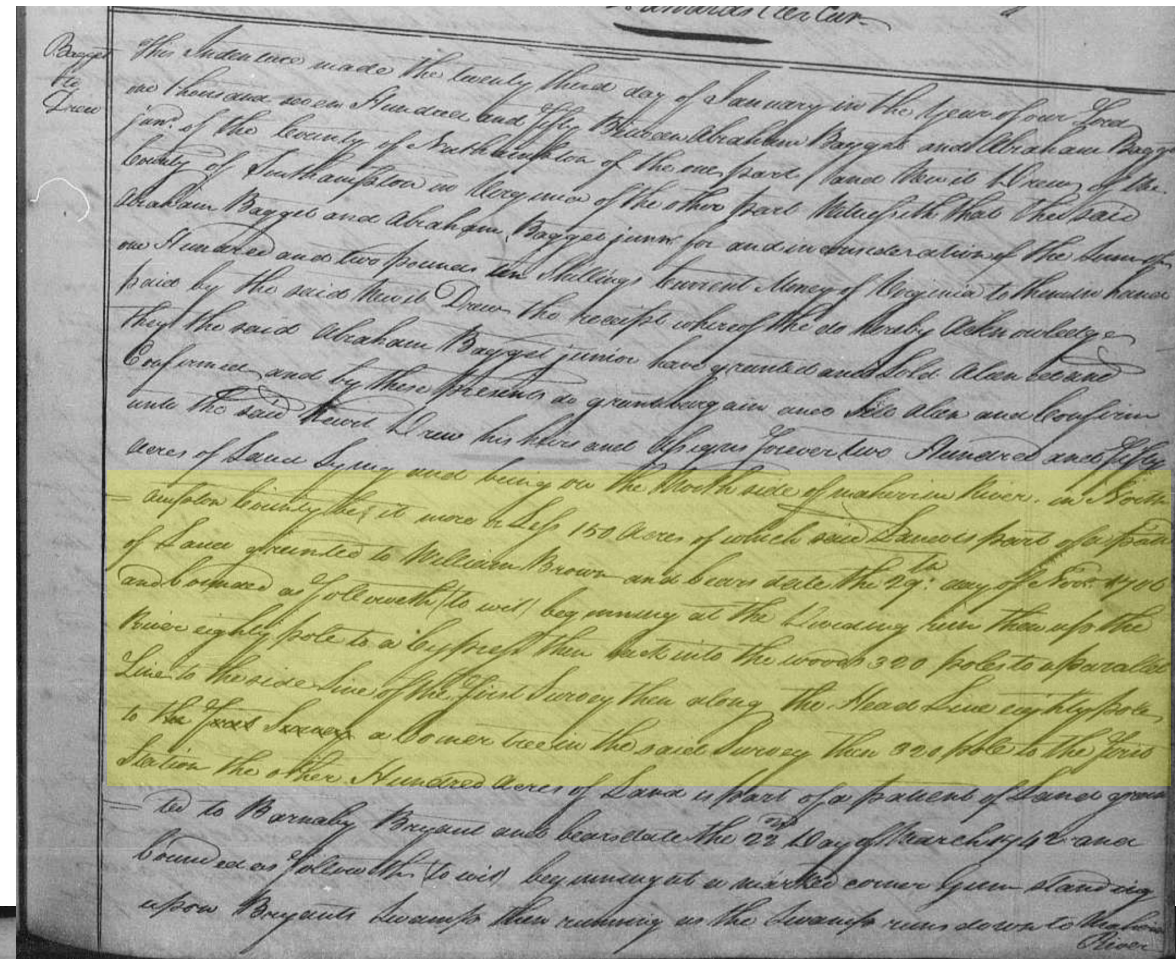 Edwards Cler Cur
Bagget
to
Drew
This Indenture made the twenty third day of January in the year of our Lord
one thousand seven Hundred and fifty Between Abraham Bagget and Abraham Bagget
junr. of the County of Northampton of the one part and Newit Drew of the
County of Southampton in Verginia of the other part Witnesseth that the said
Abraham Bagget and Abraham Bagget junr. for and in consideration of the Sum of
one Hundred and two pounds ten Shillings Current Money of Verginia to them in hand
paid by the said Newit Drew the receipt whereof the do hereby Acknowledge
they the said Abraham Bagget junior have granted and Sold Alien ed and
Confirmed and by these presents do grant bargain and Sell Alen and Confirm
unto the said Newit Drew his heirs and Assigns forever two Hundred and fifty
acres of Land Lying and being on the North side of maherin River in North
=ampton County be it more or Less 150 Acres of which said Land is part of a patten
of Land grainted to William Brown and bears date the 29th. day of Novr. 1706
and bounded as followeth (to wit) beginning at the Dividing run then up the
River eighty pole to a Cypress then back into the woods 320 poles to a parallel
Line to the side Line of the first Survey then along the Head Line eighty pole
to the first Survey a Corner tree in the said Survey then 320 pole to the first
Station the other Hundred Acres of Land is part of a patient of Land grain
=ted to Barnaby Bryant and bears date the 22nd Day of March 1742 and
bounded as followeth (to wit) beginning at a marked corner Gum standing
upon Bryants Swamp then running as the Swamp runs down to Meherin
River